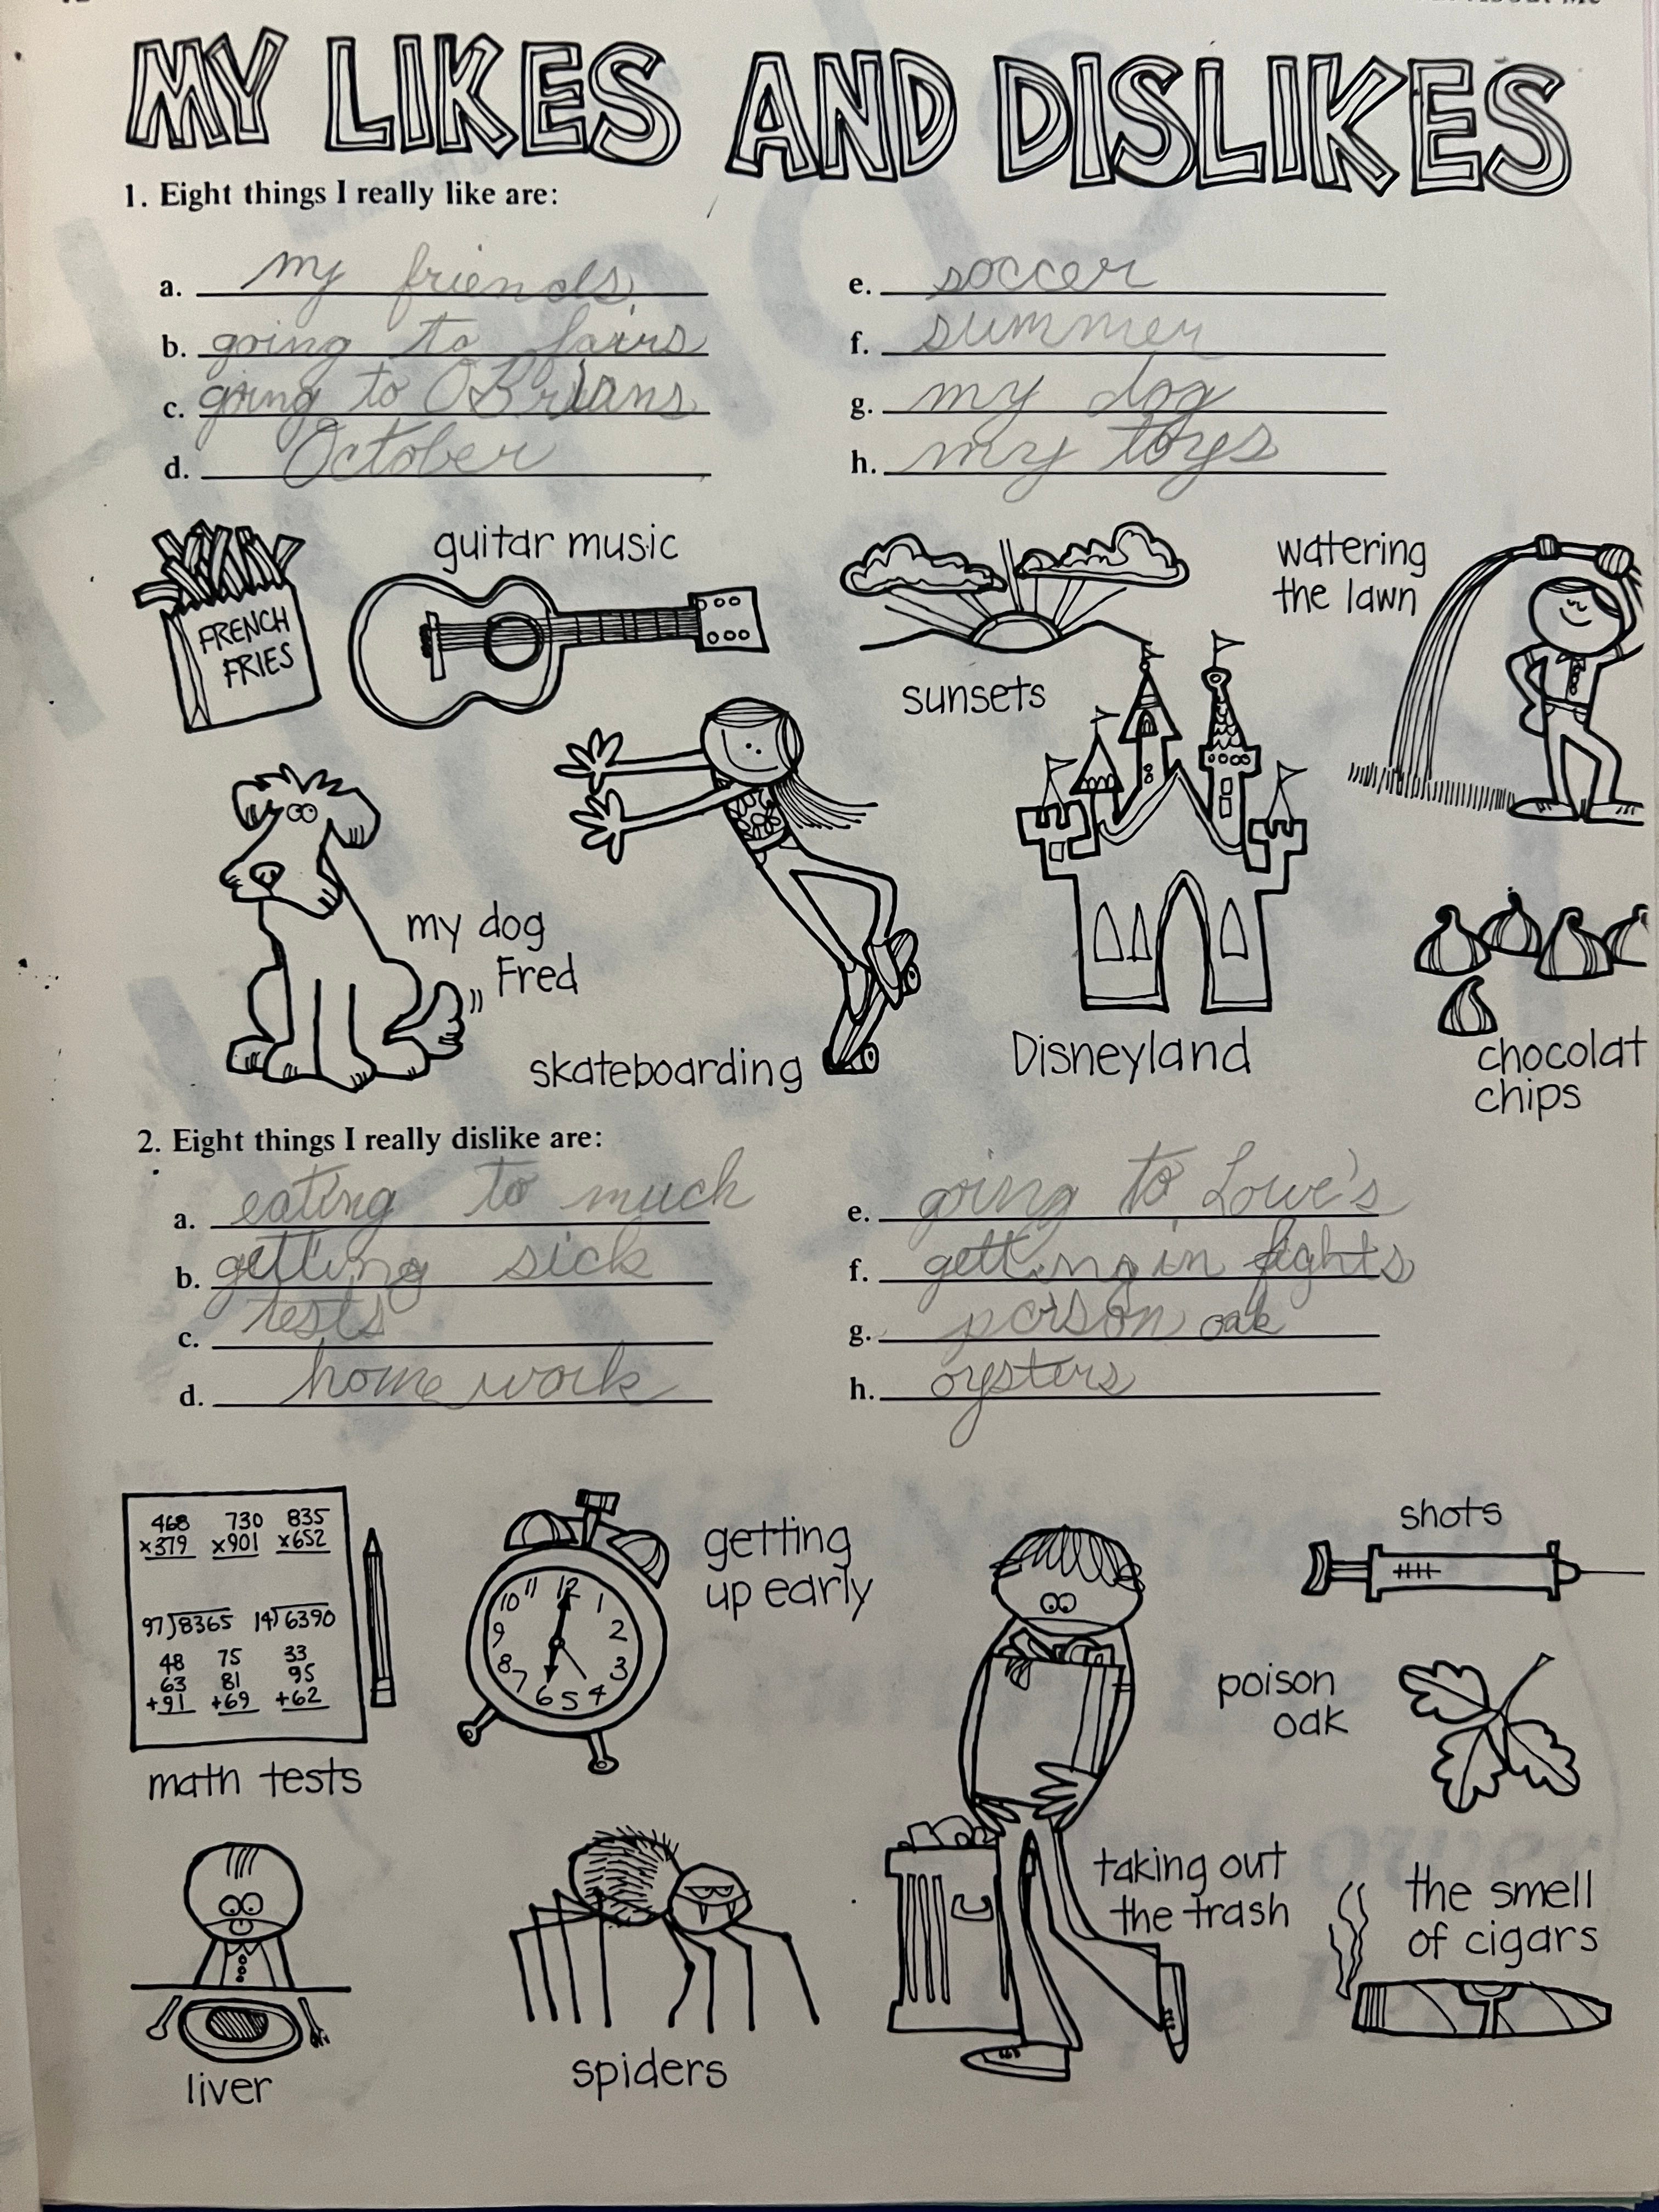 MY LIKES AND DISLIKES
1. Eight things I really like are:
a. my friends
b. going to fairs
c. going to OBrians
d. October
e. soccer
f. summer
g. my dog
h. my toys
FRENCH
FRIES
guitar music
sunsets
watering
the lawn
my dog
Fred
skateboarding
Disneyland
chocolat
chips
2. Eight things I really dislike are:
a. eating to much
b. getting sick
c. tests
d. home work
e. going to Lowe's
f. getting in fights
g. poison oak
h. oysters
468 730 835
x379 x901 x652
97)8365 14)6390
48 75 33
63 81 95
+91 +69 +62
math tests
12 1 2 3 4 5 6 7 8 9 10 11
getting
up early
shots
poison
oak
taking out
the trash
the smell
of cigars
liver
spiders